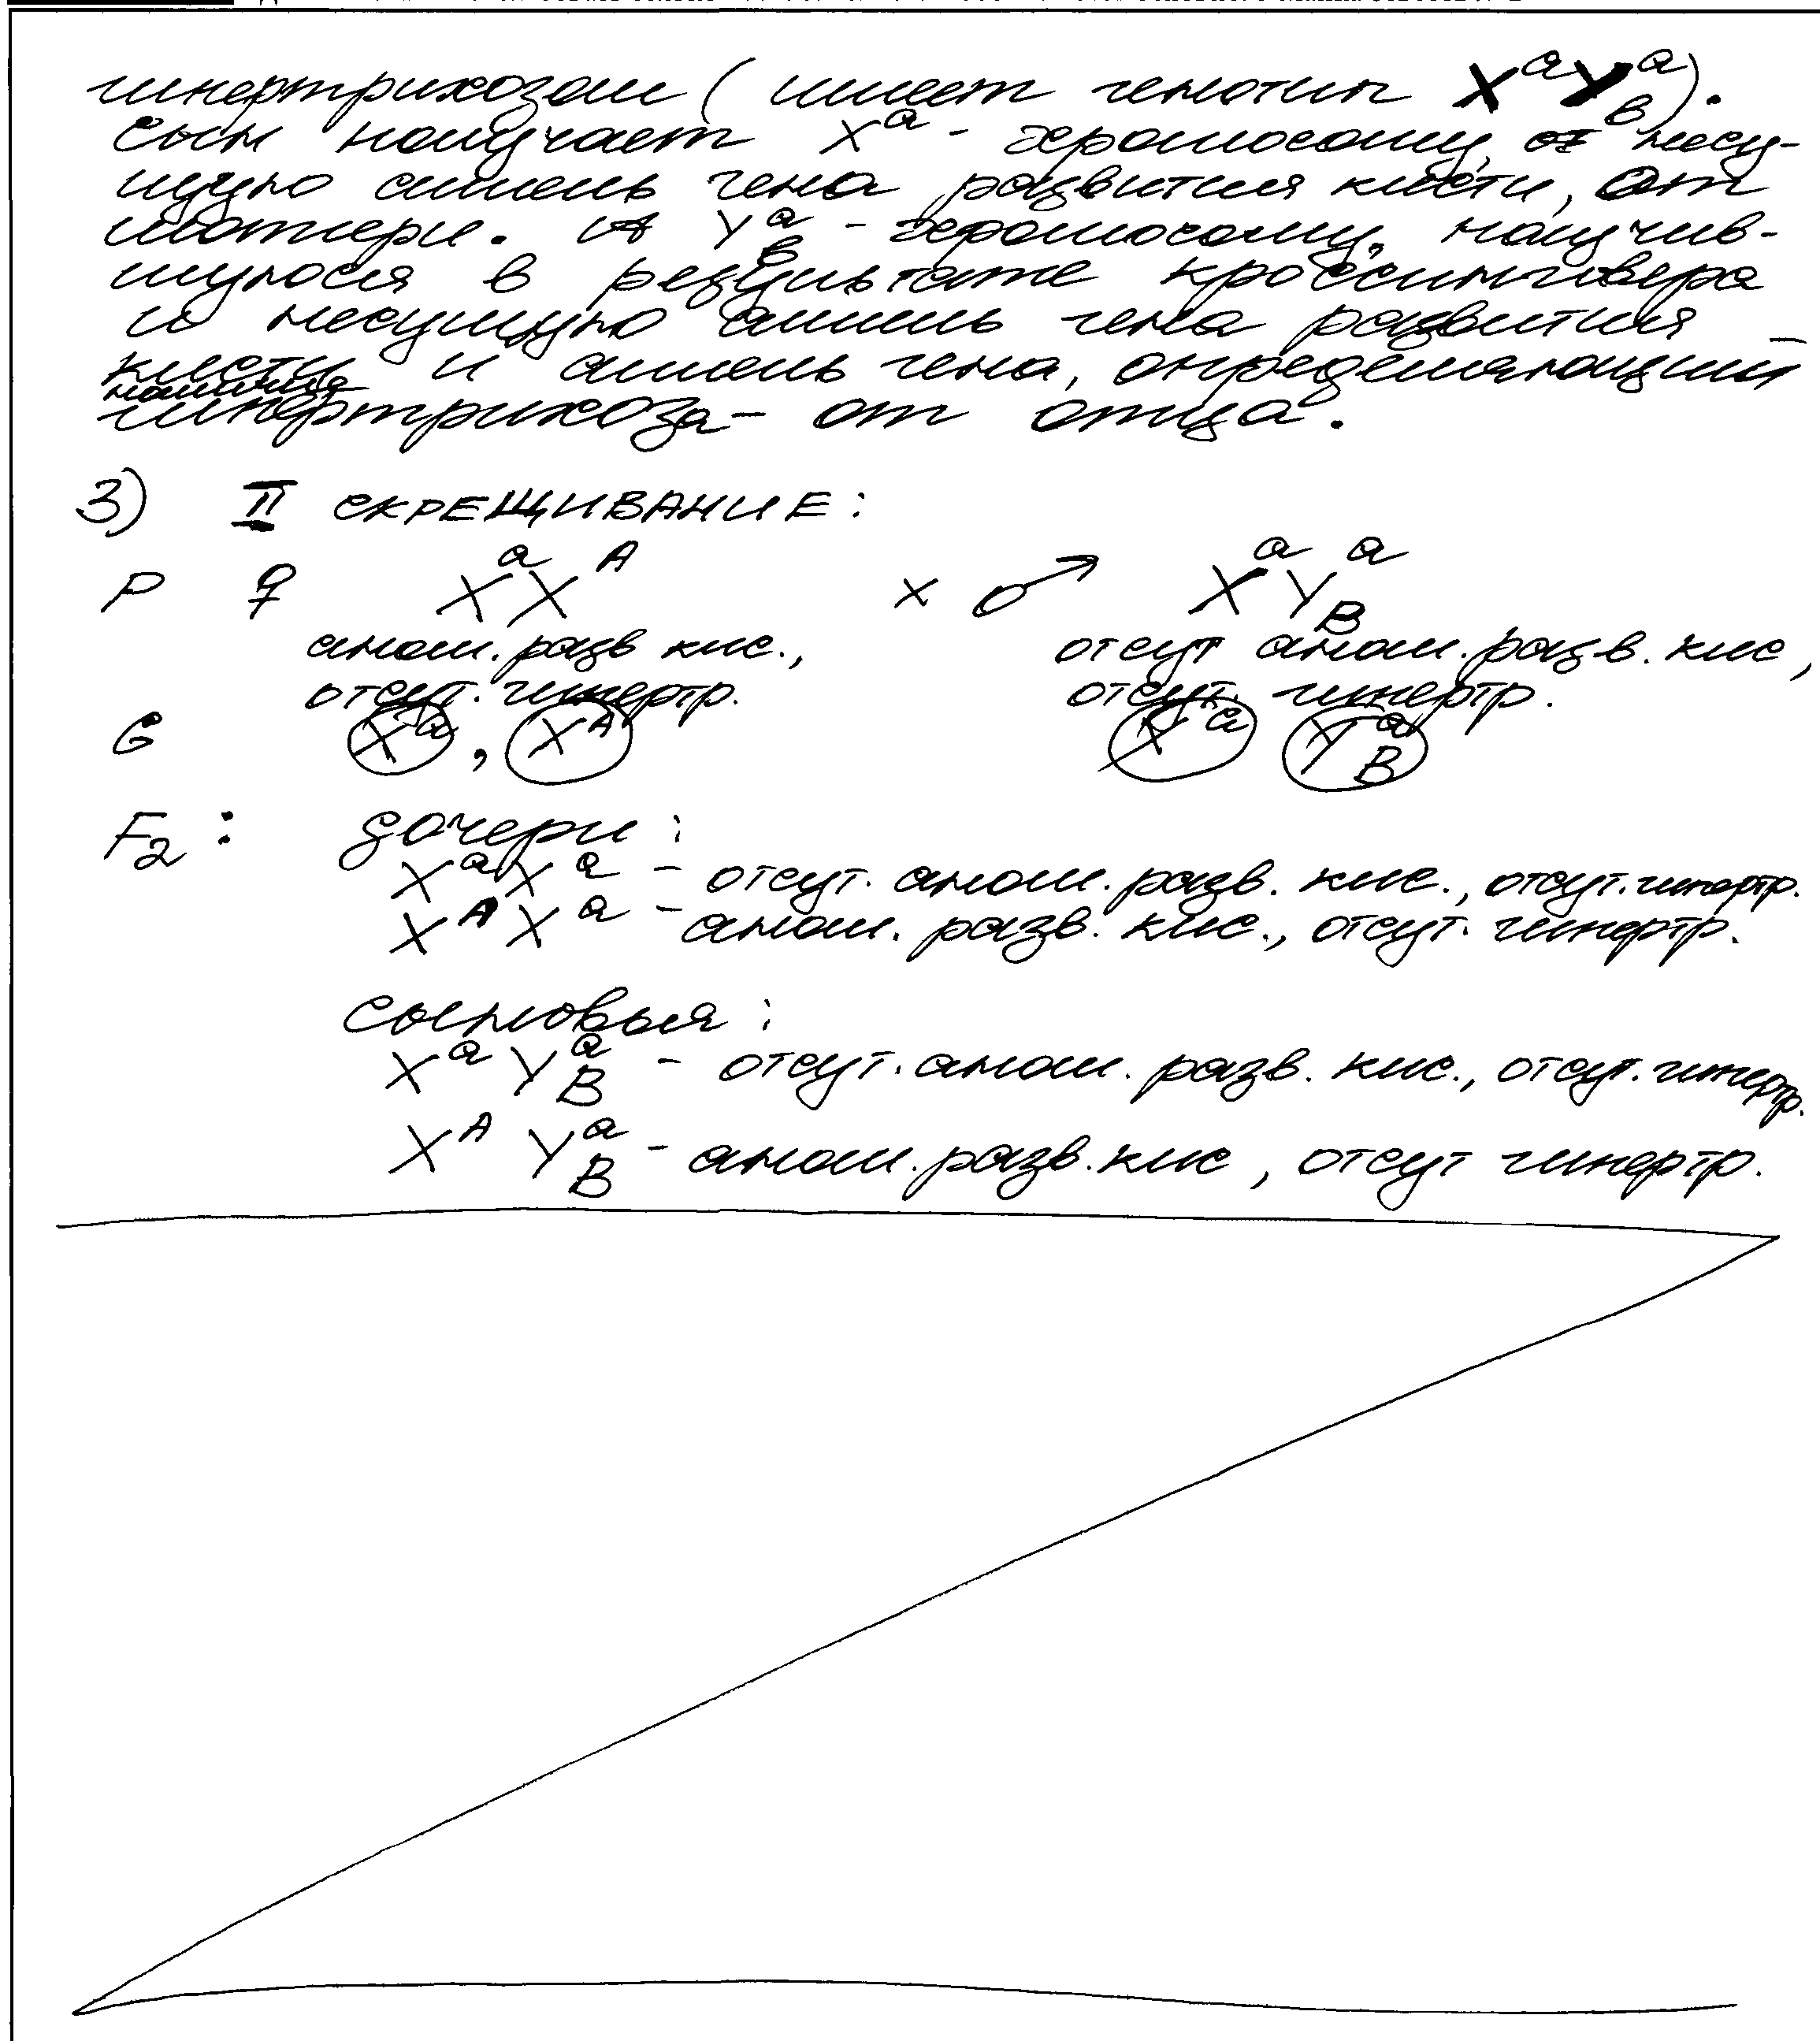 гипертрихозом (имеет генотип XᵃYᵃ_b).
Сын получает Xᵃ - хромосому, несу-
щую аллель гена развития кисти, от
матери. А Yᵃ_b - хромосому, получив-
шуюся в результате кроссинговера
и несущую аллель гена развития
кисти и аллель гена, определяющий
наличия
гипертрихоза - от отца.
3) II СКРЕЩИВАНИЕ:
P ♀ XᵃXᴬ x ♂ XᵃYᵃ_B
аном. разв кис., отсут аном. разв. кис,
отсут. гипертр. отсут. гипертр.
G Xᵃ, Xᴬ Xᵃ Yᵃ_B
F₂: дочери:
XᵃXᵃ - отсут. аном. разв. кис., отсут. гипертр.
XᴬXᵃ - аном. разв. кис., отсут. гипертр.
сыновья:
XᵃYᵃ_B - отсут. аном. разв. кис., отсут. гипертр.
XᴬYᵃ_B - аном. разв. кис, отсут гипертр.